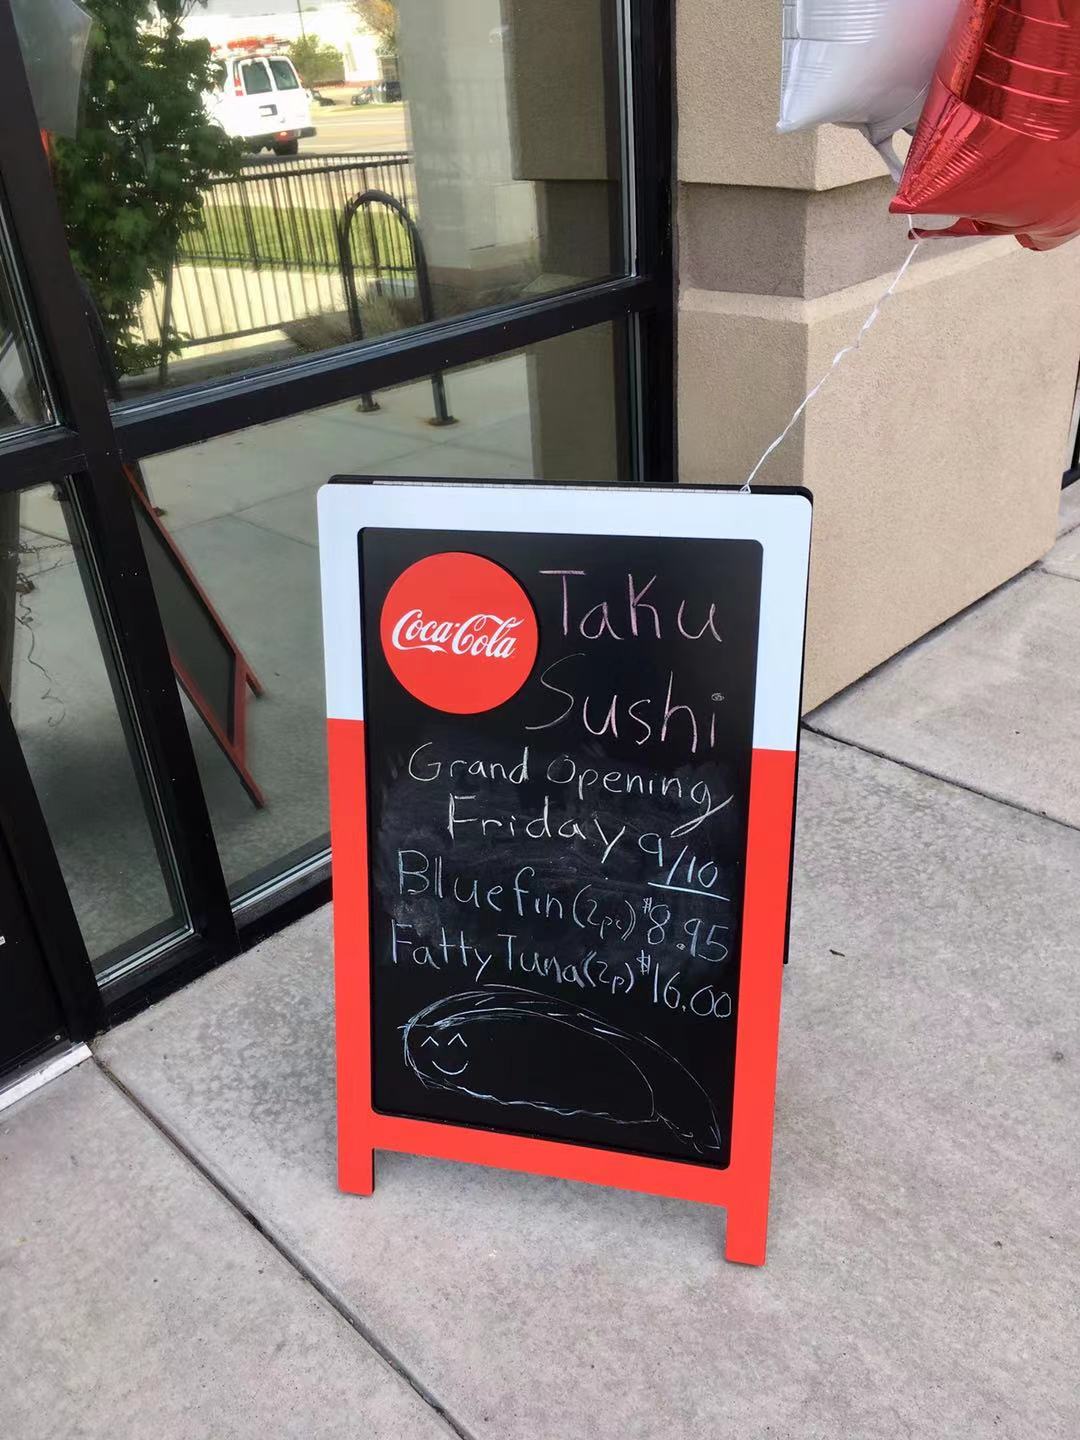 Coca-Cola
Taku
Sushi
Grand Opening
Friday 9/10
Bluefin (2pc) $8.95
Fatty Tuna (2p) $16.00